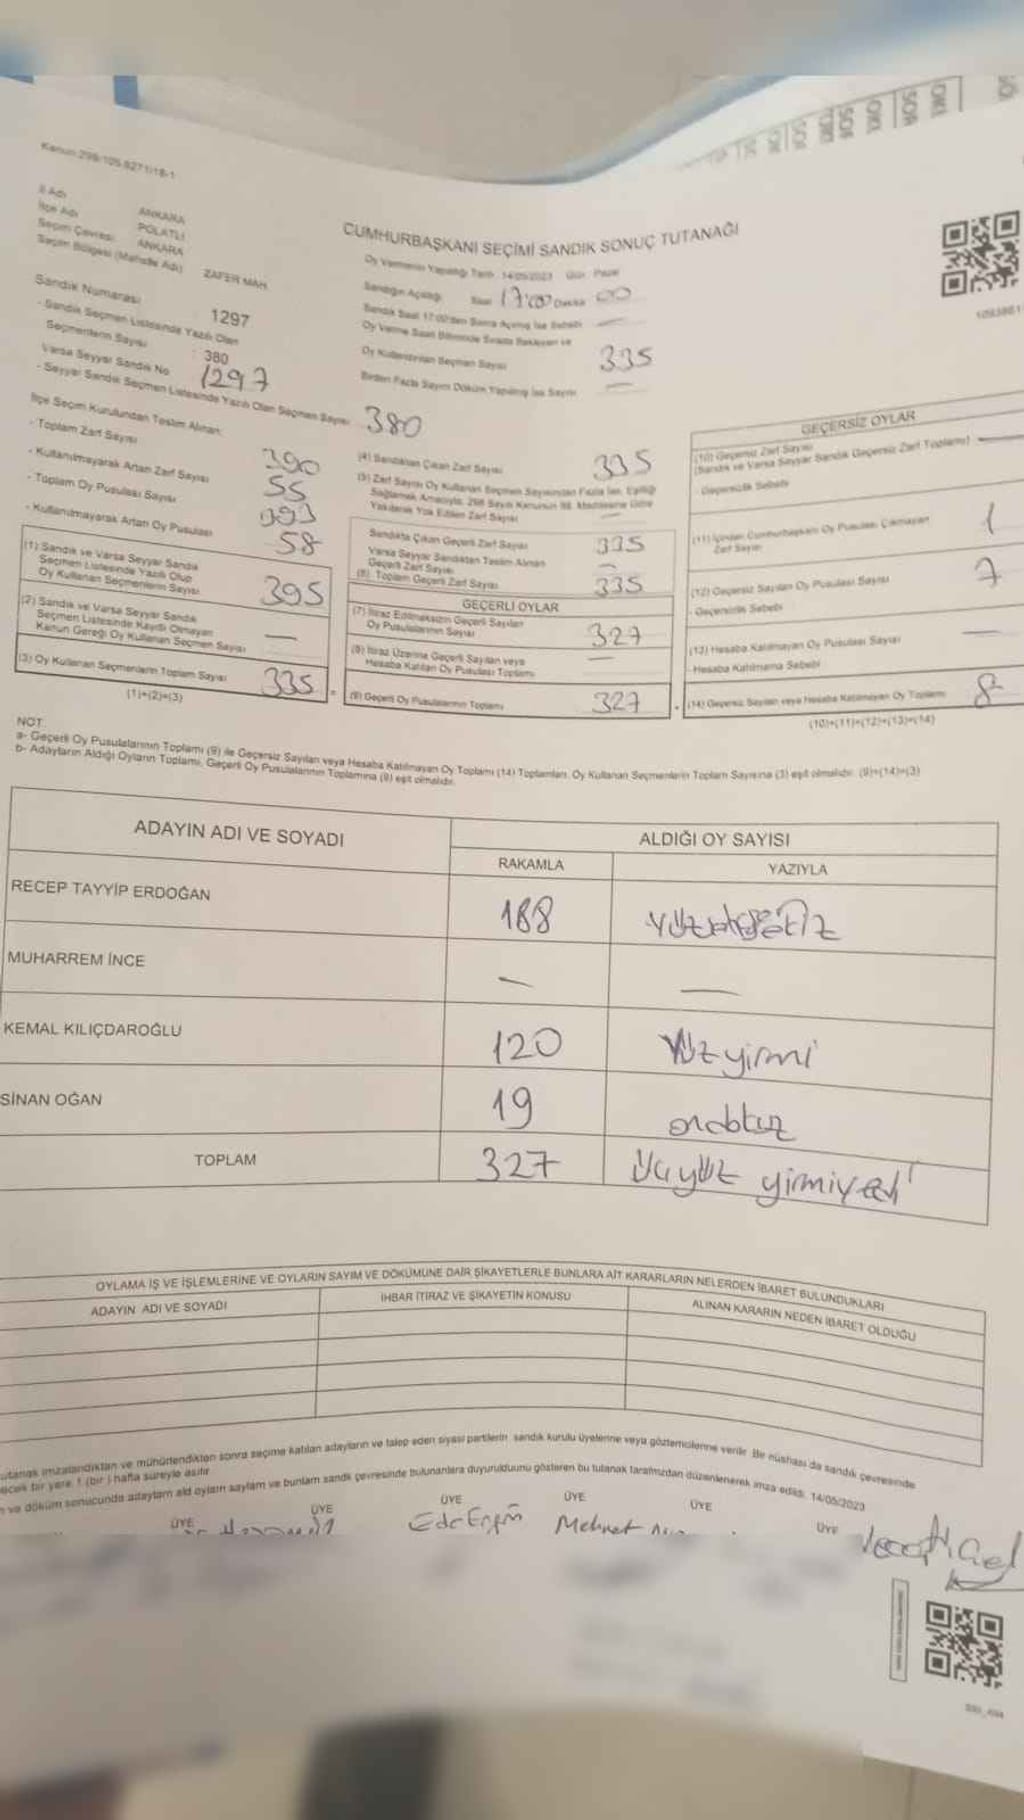 Kanun:298/105.8271/18-1
İl Adı ANKARA
İlçe Adı POLATLI
Seçim Çevresi ANKARA
Seçim Bölgesi (Mahalle Adı) ZAFER MAH.
CUMHURBAŞKANI SEÇİMİ SANDIK SONUÇ TUTANAĞI
Oy Vermenin Yapıldığı Tarih: 14/05/2023 Gün: Pazar
Sandığın Açıldığı Saat 17:00 Dakika 00
Sandık Saat 17:00'den Sonra Açılmış İse Sebebi —
Oy Verme Saati Bitiminde Sırada Bekleyen ve
Oy Kullandırılan Seçmen Sayısı 335
Birden Fazla Sayım Döküm Yapılmış İse Sayısı —
Sandık Numarası 1297
- Sandık Seçmen Listesinde Yazılı Olan
Seçmenlerin Sayısı : 380
Varsa Seyyar Sandık No 1297
- Seyyar Sandık Seçmen Listesinde Yazılı Olan Seçmen Sayısı 380
İlçe Seçim Kurulundan Teslim Alınan:
- Toplam Zarf Sayısı 390
- Kullanılmayarak Artan Zarf Sayısı 55
- Toplam Oy Pusulası Sayısı 393
- Kullanılmayarak Artan Oy Pusulası 58
(1) Sandık ve Varsa Seyyar Sandık
Seçmen Listesinde Yazılı Olup
Oy Kullanan Seçmenlerin Sayısı 395
(2) Sandık ve Varsa Seyyar Sandık
Seçmen Listesinde Kayıtlı Olmayan
Kanun Gereği Oy Kullanan Seçmen Sayısı —
(3) Oy Kullanan Seçmenlerin Toplam Sayısı 335
(1)+(2)=(3)
(4) Sandıktan Çıkan Zarf Sayısı 335
(5) Zarf Sayısı Oy Kullanan Seçmen Sayısından Fazla İse, Eşitliği
Sağlamak Amacıyla, 298 Sayılı Kanunun 98. Maddesine Göre
Yakılarak Yok Edilen Zarf Sayısı —
Sandıkta Çıkan Geçerli Zarf Sayısı 335
Varsa Seyyar Sandıktan Teslim Alınan
Geçerli Zarf Sayısı —
(6) Toplam Geçerli Zarf Sayısı 335
GEÇERLİ OYLAR
(7) İtiraz Edilmeksizin Geçerli Sayılan
Oy Pusulalarının Sayısı 327
(8) İtiraz Üzerine Geçerli Sayılan veya
Hesaba Katılan Oy Pusulası Toplamı —
(9) Geçerli Oy Pusulalarının Toplamı 327
GEÇERSİZ OYLAR
(10) Geçersiz Zarf Sayısı
(Sandık ve Varsa Seyyar Sandık Geçersiz Zarf Toplamı) —
- Geçersizlik Sebebi
(11) İçinden Cumhurbaşkanı Oy Pusulası Çıkmayan
Zarf Sayısı 1
(12) Geçersiz Sayılan Oy Pusulası Sayısı 7
- Geçersizlik Sebebi
(13) Hesaba Katılmayan Oy Pusulası Sayısı —
- Hesaba Katılmama Sebebi
(14) Geçersiz Sayılan veya Hesaba Katılmayan Oy Toplamı 8
(10)+(11)+(12)+(13)=(14)
NOT:
a- Geçerli Oy Pusulalarının Toplamı (9) ile Geçersiz Sayılan veya Hesaba Katılmayan Oy Toplamı (14) Toplamları, Oy Kullanan Seçmenlerin Toplam Sayısına (3) eşit olmalıdır. (9)+(14)=(3)
b- Adayların Aldığı Oyların Toplamı, Geçerli Oy Pusulalarının Toplamına (9) eşit olmalıdır.
ADAYIN ADI VE SOYADI
ALDIĞI OY SAYISI
RAKAMLA YAZIYLA
RECEP TAYYİP ERDOĞAN 188
MUHARREM İNCE — —
KEMAL KILIÇDAROĞLU 120 Yüz yirmi
SİNAN OĞAN 19 ondokuz
TOPLAM 327 Üçyüz yirmiyedi
OYLAMA İŞ VE İŞLEMLERİNE VE OYLARIN SAYIM VE DÖKÜMÜNE DAİR ŞİKAYETLERLE BUNLARA AİT KARARLARIN NELERDEN İBARET BULUNDUKLARI
ADAYIN ADI VE SOYADI
İHBAR İTİRAZ VE ŞİKAYETİN KONUSU
ALINAN KARARIN NEDEN İBARET OLDUĞU
imzalandıktan ve mühürlendikten sonra seçime katılan adayların ve talep eden siyasi partilerin sandık kurulu üyelerine veya gözlemcilerine verilir. Bir nüshası da sandık çevresinde
bir yere 1 (bir) hafta süreyle asılır.
ve döküm sonucunda adayların oyların sayılanı ve bunların sandık çevresinde bulunanlara duyurulduğunu gösteren bu tutanak tarafımızdan düzenlenerek imza edildi. 14/05/2023
ÜYE ÜYE ÜYE ÜYE ÜYE ÜYE
Mehmet